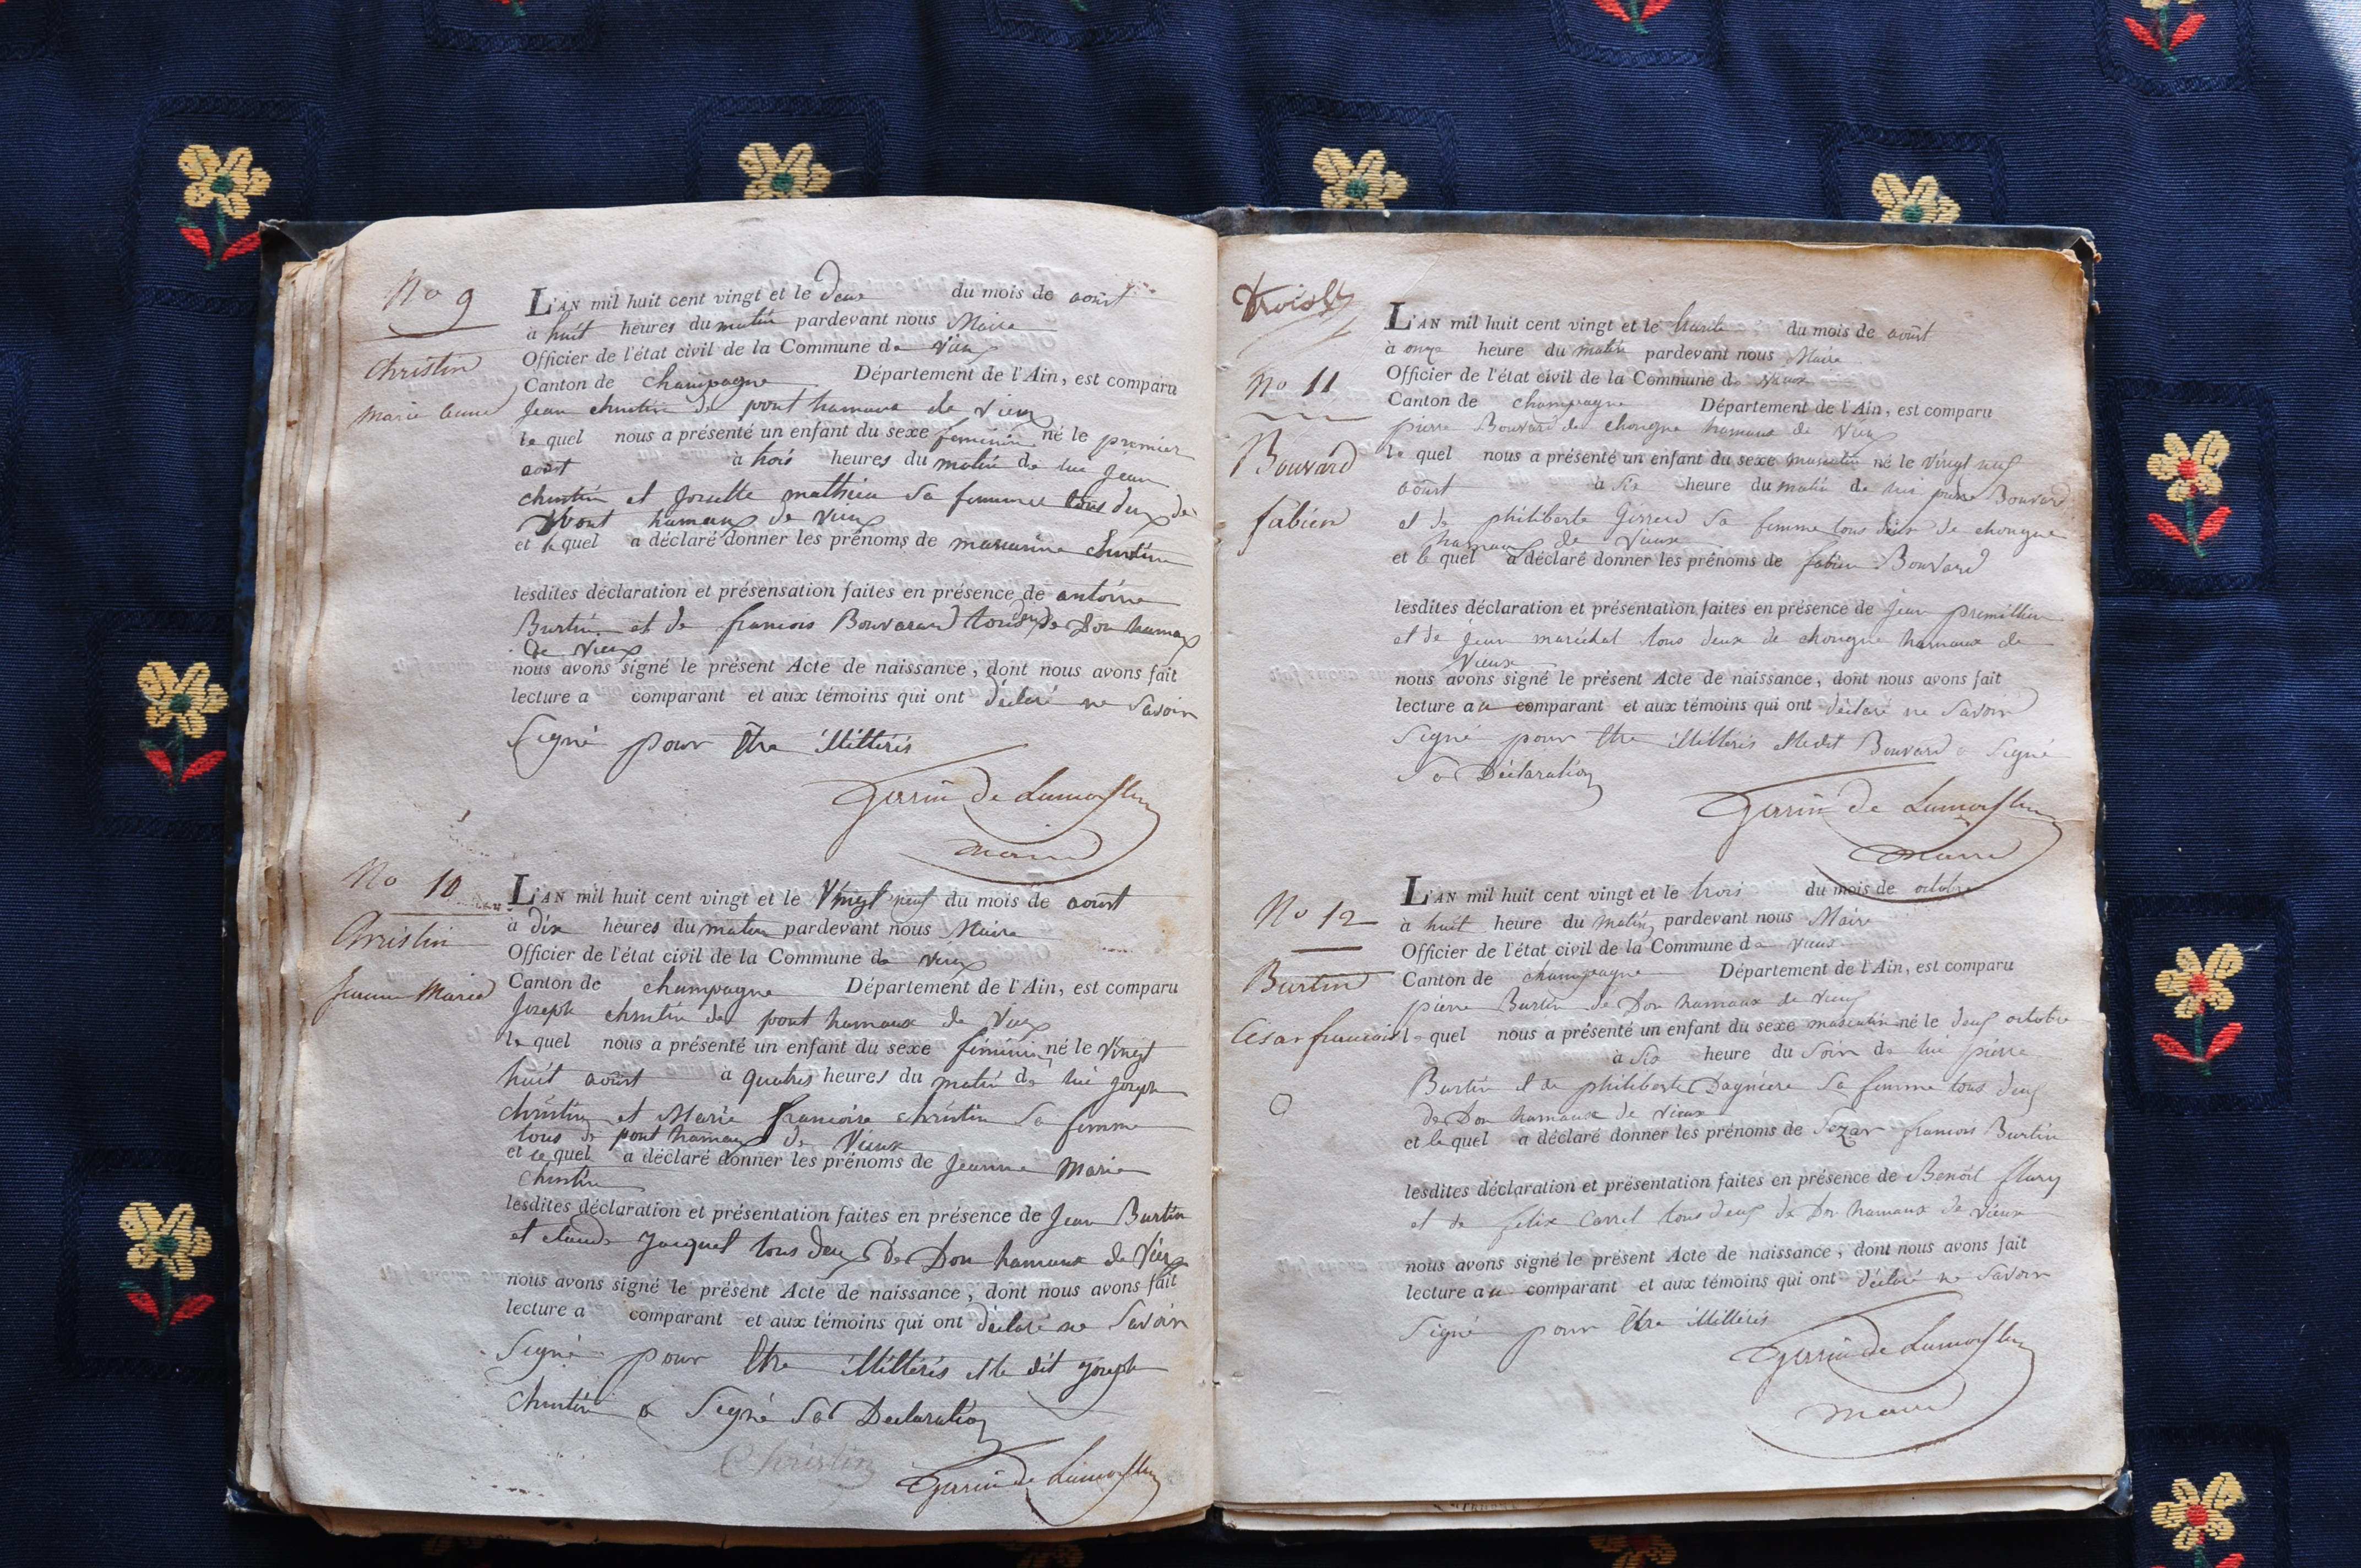 No 9
Christin
Marie
L'AN mil huit cent vingt et le deux du mois de août
à huit heures du matin pardevant nous Maire
Officier de l'état civil de la Commune de vieux
Canton de Champagne Département de l'Ain, est comparu
Jean christin de pont hamaux de vieux
le quel nous a présenté un enfant du sexe feminin né le premier
août à trois heures du matin de lui Jean
christin et Josette mathieu sa femme tous deux de
pont hamaux de vieux
et le quel a déclaré donner les prénoms de christin
lesdites déclaration et présensation faites en présence de antoine
Burtin et de francois Bouvard tous de Don hamaux
de vieux
nous avons signé le présent Acte de naissance, dont nous avons fait
lecture a comparant et aux témoins qui ont déclaré ne Savoir
Signé pour Être illittérés
maire
No 10
Christin
Jeanne Marie
L'AN mil huit cent vingt et le Vingt neuf du mois de août
à dix heures du matin pardevant nous Maire
Officier de l'état civil de la Commune de vieux
Canton de champagne Département de l'Ain, est comparu
Joseph christin de pont hamaux de vieux
le quel nous a présenté un enfant du sexe féminin né le vingt
huit août à quatres heures du matin de lui joseph
christin et Marie francoise christin sa femme
tous de pont hamaux de Vieux
et le quel a déclaré donner les prénoms de Jeanne Marie
Christin
lesdites déclaration et présentation faites en présence de Jean Burtin
et claude jacquet tous deux De Don hamaux de Vieux
nous avons signé le présent Acte de naissance, dont nous avons fait
lecture a comparant et aux témoins qui ont déclaré ne Savoir
Signé pour Être illittérés et le dit joseph
Christin a Signé Sa Declaration
Christin
No 11
Bouvard
fabien
L'AN mil huit cent vingt et le trente du mois de août
à onze heure du matin pardevant nous Maire
Officier de l'état civil de la Commune de vieux
Canton de champagne Département de l'Ain, est comparu
pierre Bouvard de chongne hamaux de vieux
le quel nous a présenté un enfant du sexe masculin né le vingt neuf
août à six heure du matin de lui pierre Bouvard
et de philiberte sa femme tous deux de chongne
hamaux de vieux
et le quel a déclaré donner les prénoms de fabien Bouvard
lesdites déclaration et présentation faites en présence de Jean premillieu
et de Jean maréchal tous deux de chongne hamaux de
Vieux
nous avons signé le présent Acte de naissance, dont nous avons fait
lecture au comparant et aux témoins qui ont déclaré ne Savoir
Signé pour Être illittérés et ledit Bouvard a Signé
Sa Déclaration
maire
No 12
Burtin
César francois
L'AN mil huit cent vingt et le trois du mois de octobre
à huit heure du matin pardevant nous Maire
Officier de l'état civil de la Commune de vieux
Canton de champagne Département de l'Ain, est comparu
pierre Burtin de Don hamaux de vieux
le quel nous a présenté un enfant du sexe masculin né le deux octobre
à six heure du Soir de lui pierre
Burtin et de philiberte sa femme tous deux
de Don hamaux de vieux
et le quel a déclaré donner les prénoms de Sezar francois Burtin
lesdites déclaration et présentation faites en présence de Benoît flury
et de felix Carrel tous deux de Don hamaux de vieux
nous avons signé le présent Acte de naissance, dont nous avons fait
lecture au comparant et aux témoins qui ont déclaré ne Savoir
Signé pour Être illittérés
maire